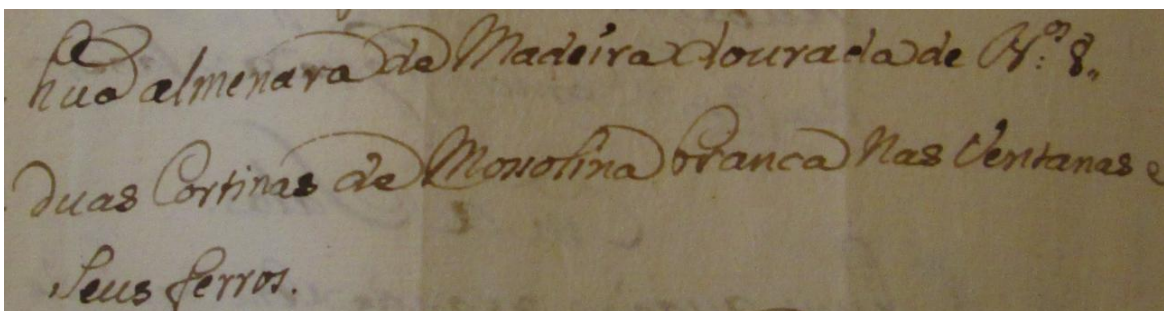 hua almenara de Madeira dourada de N.º 8,,
duas Cortinas de Mossolina branca Nas Ventanas e
Seus ferros.